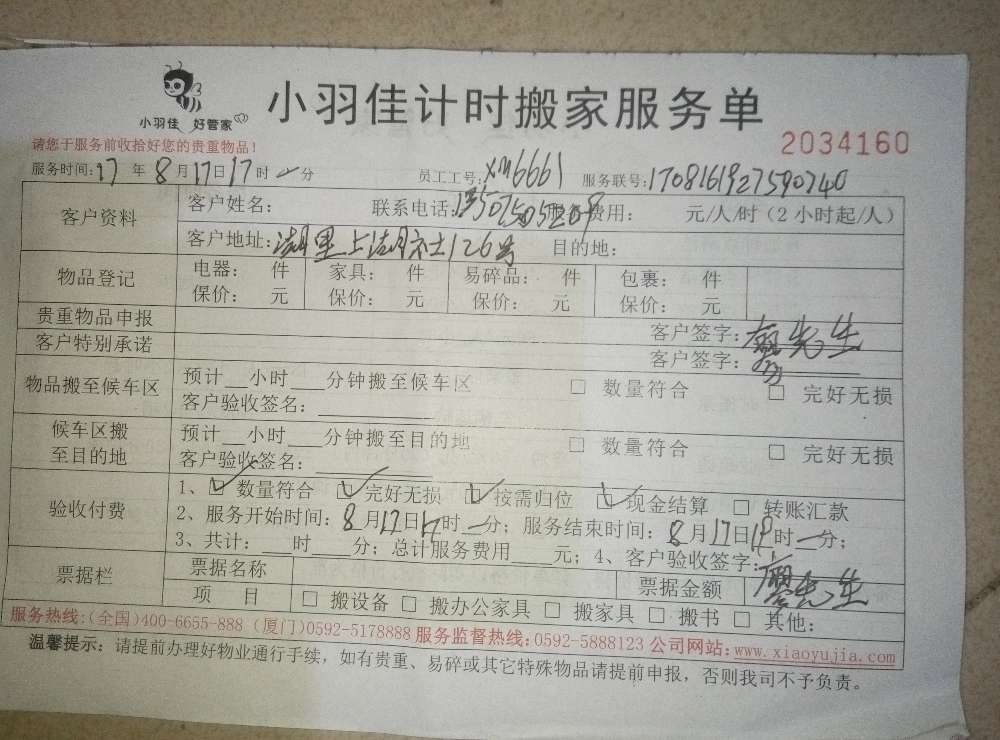 小羽佳 好管家
小羽佳计时搬家服务单
2034160
请您于服务前收拾好您的贵重物品！
服务时间：17年8月17日17时一分 员工工号：xm6661 服务联号：1708161927590740
客户资料 客户姓名： 联系电话： 费用： 元/人/时（2小时起/人）
客户地址：湖里上湖社126号 目的地：
物品登记 电器： 件 家具： 件 易碎品： 件 包裹： 件
保价： 元 保价： 元 保价： 元 保价： 元
贵重物品申报 客户签字：廖先生
客户特别承诺 客户签字：
物品搬至候车区 预计__小时___分钟搬至候车区 □ 数量符合 □ 完好无损
客户验收签名：
候车区搬至目的地 预计__小时___分钟搬至目的地 □ 数量符合 □ 完好无损
客户验收签名：
验收付费 1、☑ 数量符合 ☑ 完好无损 ☑ 按需归位 ☑ 现金结算 □ 转账汇款
2、服务开始时间：8月17日17时一分；服务结束时间：8月17日19时一分；
3、共计：___时____分；总计服务费用____元；4、客户验收签字：廖先生
票据栏 票据名称 票据金额
项 目 □ 搬设备 □ 搬办公家具 □ 搬家具 □ 搬书 □ 其他：
服务热线：(全国)400-6655-888 (厦门)0592-5178888 服务监督热线：0592-5888123 公司网站：www.xiaoyujia.com
温馨提示：请提前办理好物业通行手续，如有贵重、易碎或其它特殊物品请提前申报，否则我司不予负责。